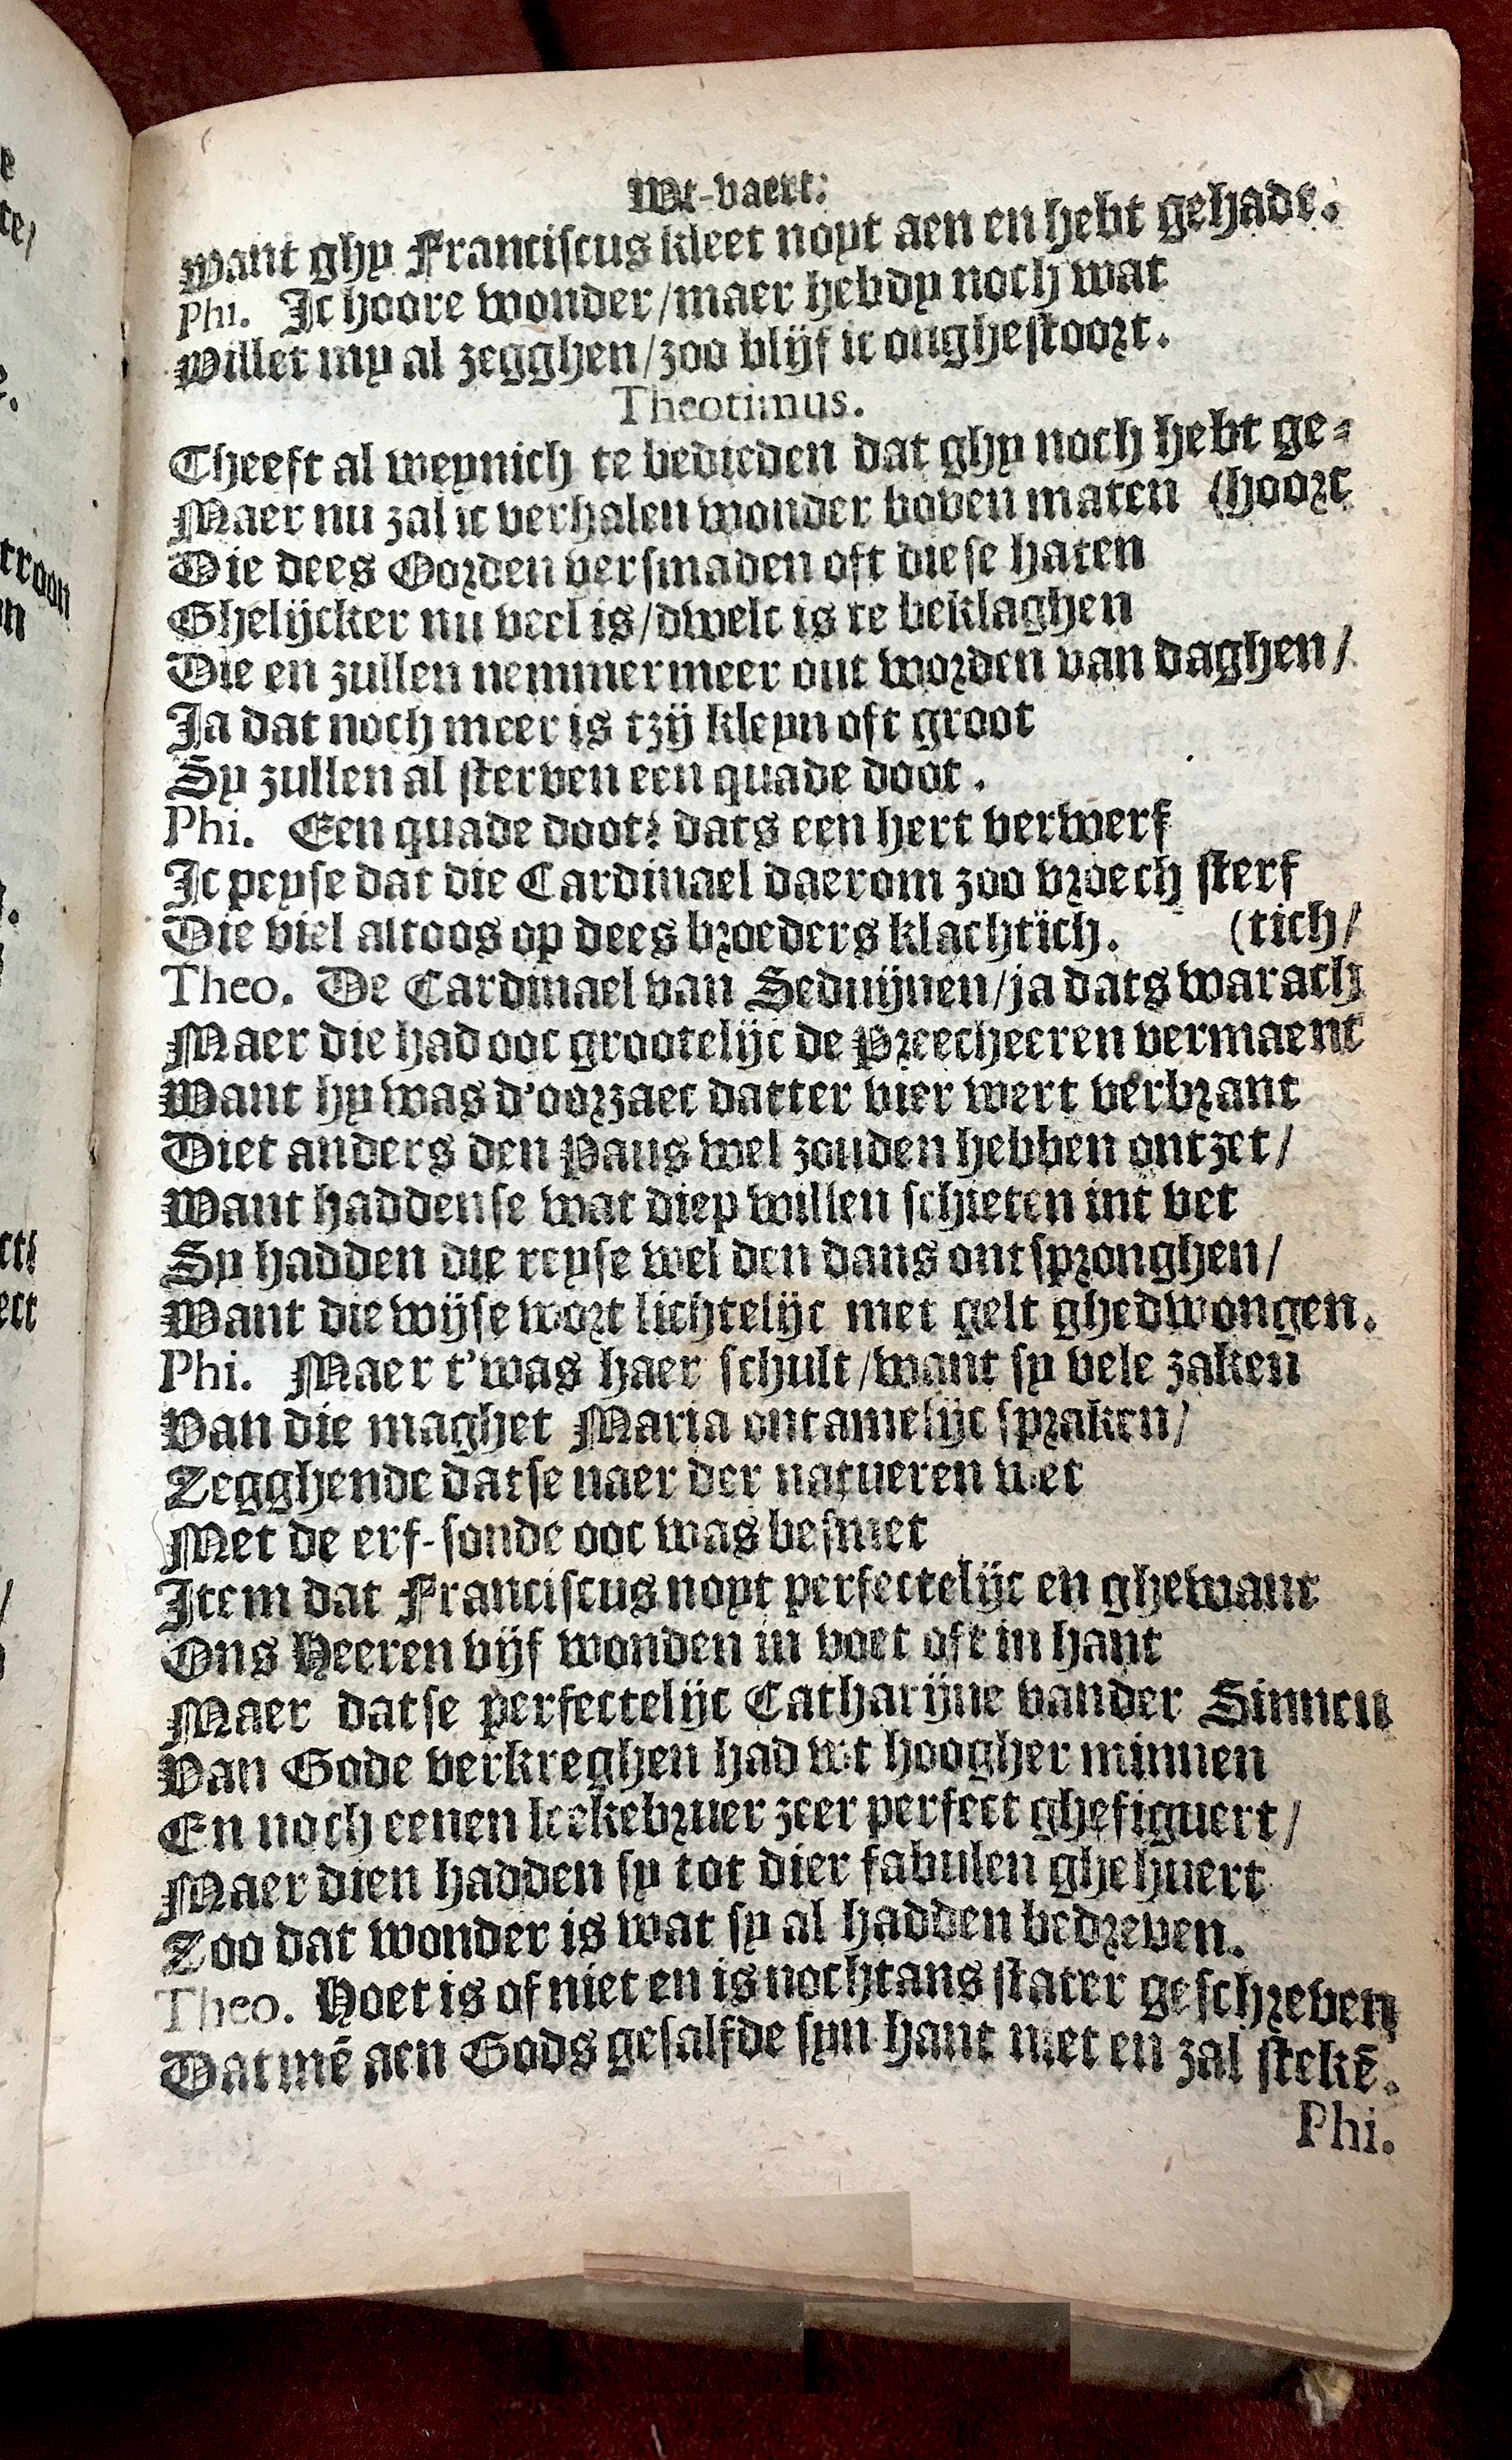 Wt-vaert:
Want ghy Franciscus kleet noyt aen en hebt gehadt.
Phi. Ic hoore wonder/maer hebdy noch wat
Willet my al zegghen/zoo blijf ic onghestoort.
Theotimus.
Theeft al weynich te bedieden dat ghy noch hebt ge-
Maer nu zal ic verhalen wonder boven maten (hoort
Die dees Oorden versmaden oft diese haten
Ghelijcker nu veel is/dwelc is te beklaghen
Die en zullen nemmermeer out worden van daghen/
Ja dat noch meer is tzij kleyn oft groot
Sy zullen al sterven een quade doot.
Phi. Een quade doot? dats een hert verwerf
Ic peyse dat die Cardinael daerom zoo vroech sterf
Die viel altoos op dees broeders klachtich. (tich/
Theo. De Cardinael van Sedunen/ja dats warach
Maer die had ooc grootelijc de Preecheeren vermaent
Want hy was d'oorzaec datter vier wert verbrant
Diet anders den Paus wel zouden hebben ontzet/
Want haddense wat diep willen schieten int vet
Sy hadden die reyse wel den dans ontspronghen/
Want die wijse wort lichtelijc met gelt ghedwongen.
Phi. Maer t'was haer schult/want sy vele zaken
Van die maghet Maria ontamelijc spraken/
Zegghende datse naer der natueren wet
Met de erf-sonde ooc was besmet
Item dat Franciscus noyt perfectelijc en ghewant
Ons Heeren vijf wonden in voet oft in hant
Maer datse perfectelijc Catharijne vander Sinnen
Van Gode verkreghen had wt hoogher minnen
En noch eenen leekebruer zeer perfect ghefiguert/
Maer dien hadden sy tot dier fabulen ghehuert
Zoo dat wonder is wat sy al hadden bedreven.
Theo. Hoet is of niet en is nochtans stater geschreven
Datmē aen Gods gesalfde syn hant niet en zal stekē.
Phi.